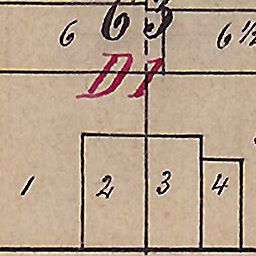 6 63 6½
D1
1 2 3 4